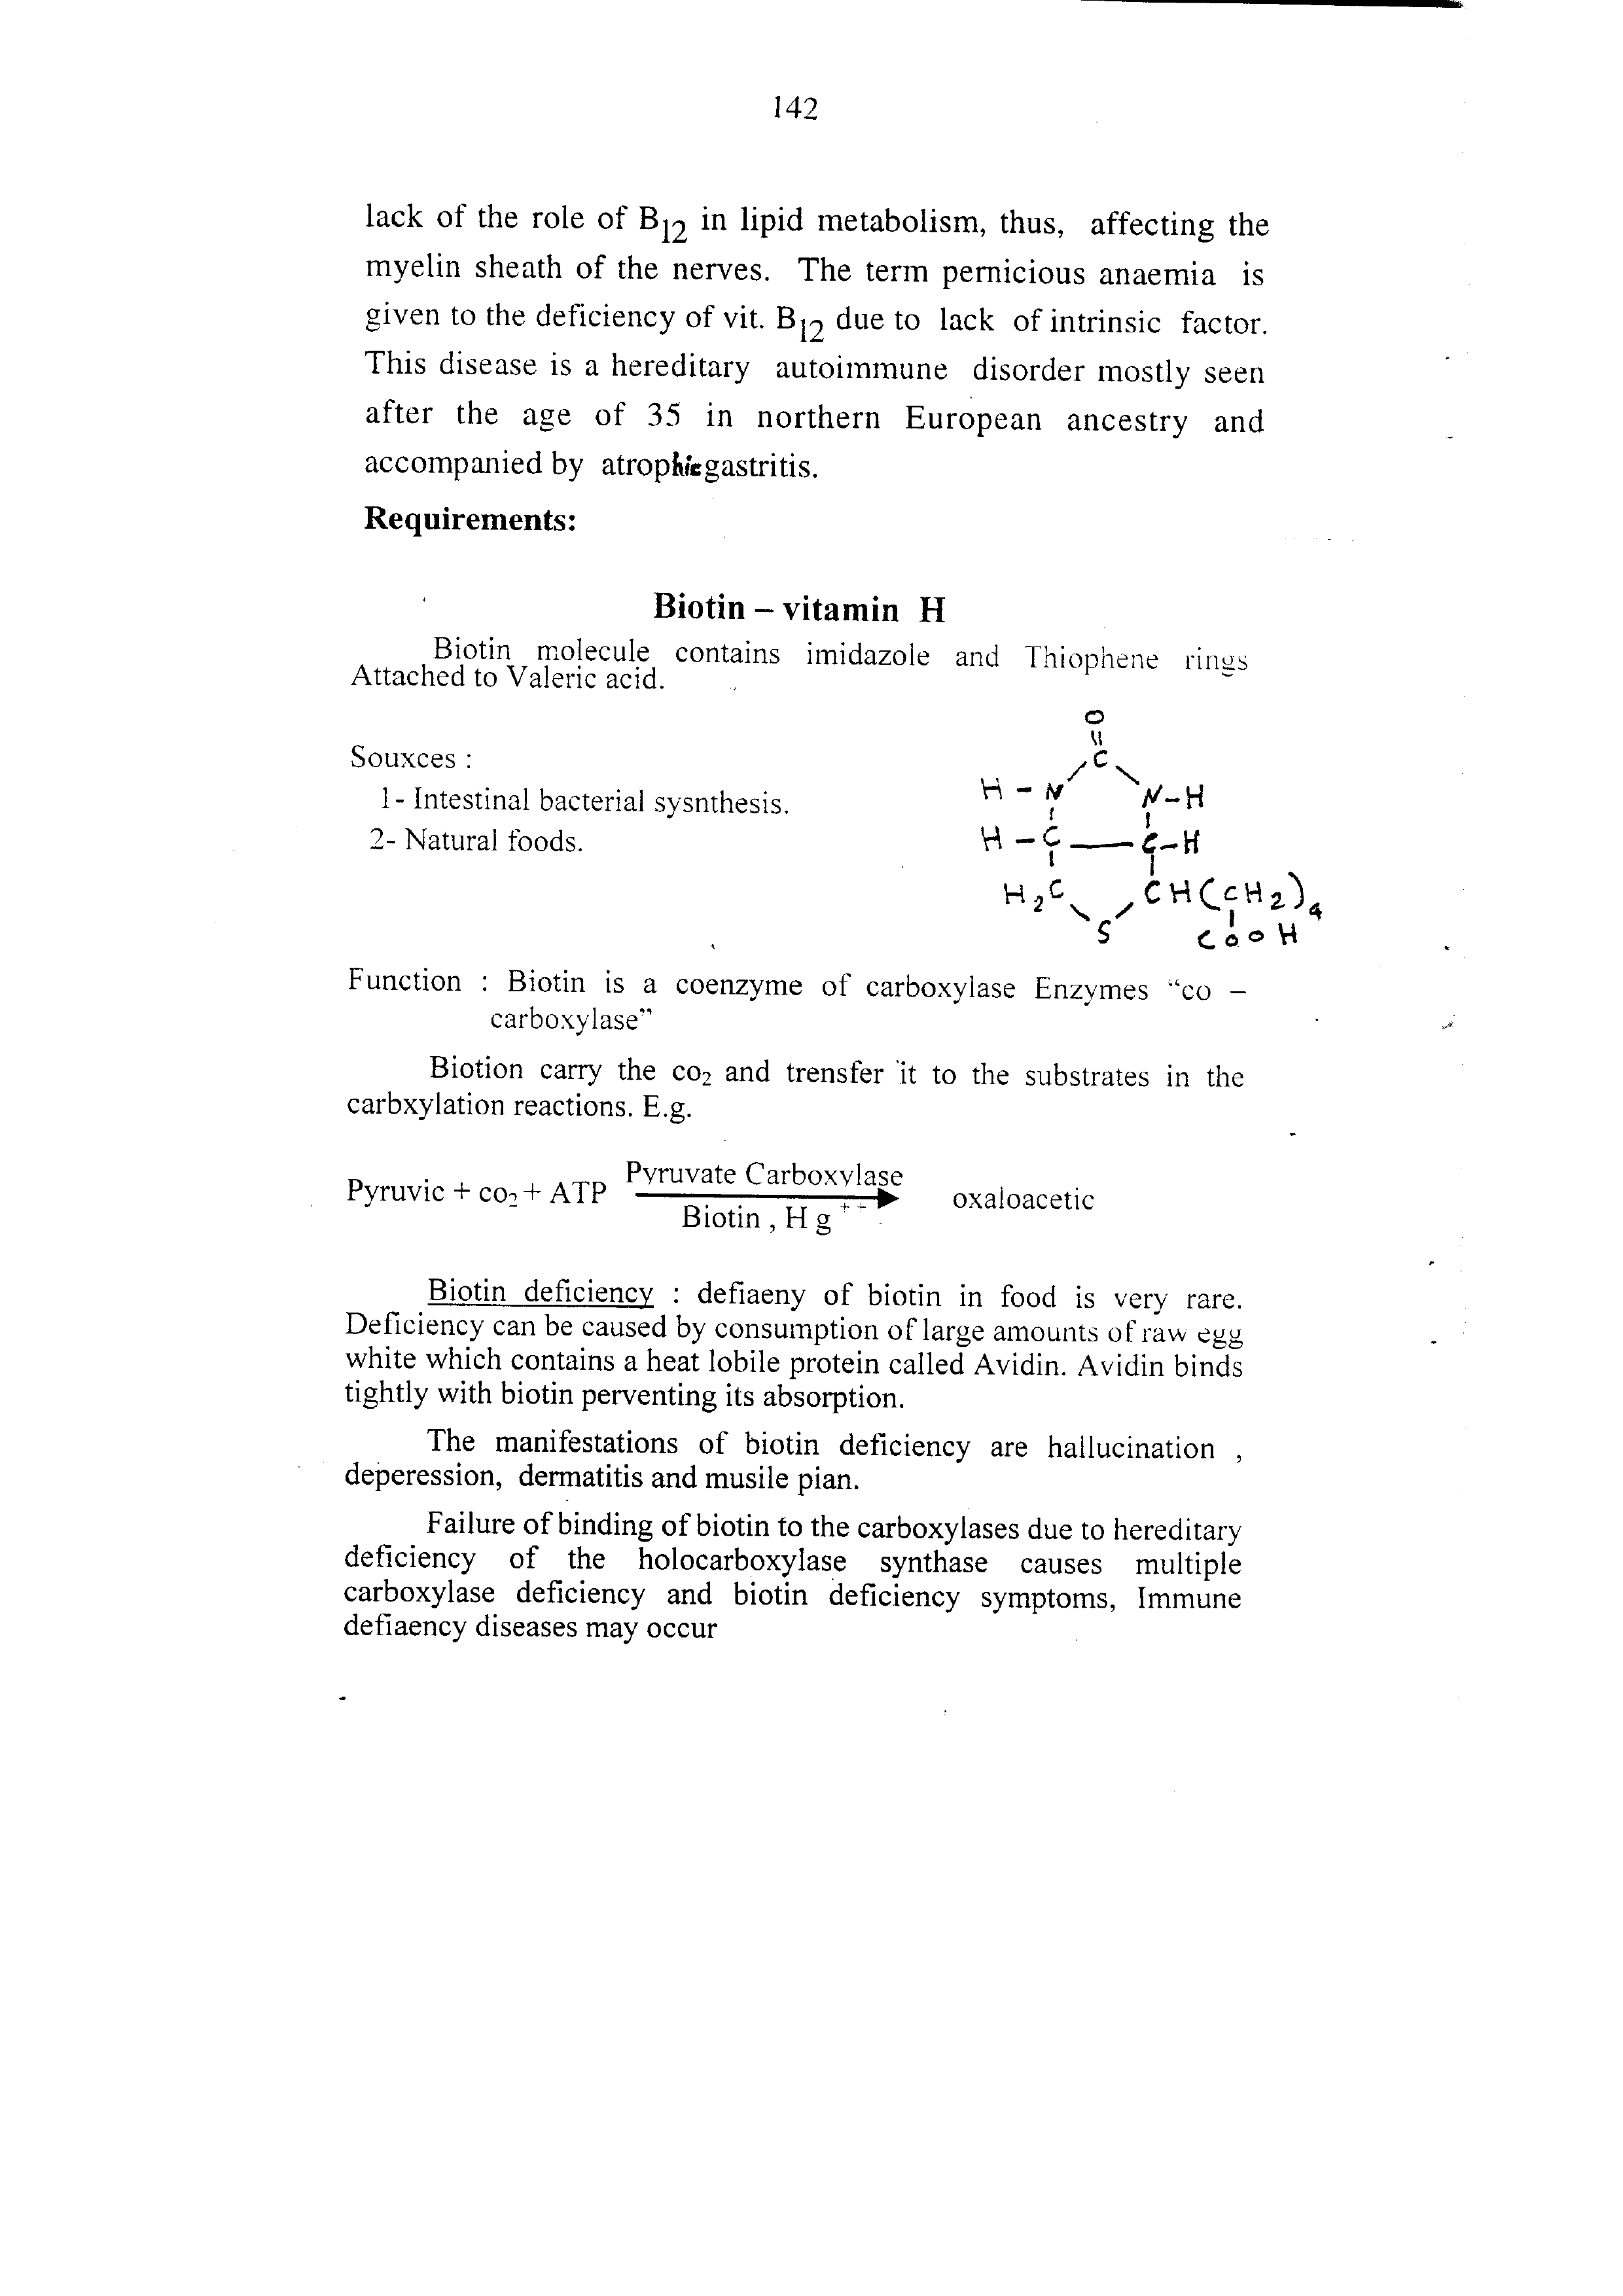 142
lack of the role of B12 in lipid metabolism, thus, affecting the
myelin sheath of the nerves. The term pernicious anaemia is
given to the deficiency of vit. B12 due to lack of intrinsic factor.
This disease is a hereditary autoimmune disorder mostly seen
after the age of 35 in northern European ancestry and
accompanied by atrophic gastritis.
Requirements:
Biotin – vitamin H
Biotin molecule contains imidazole and Thiophene rings
Attached to Valeric acid.
Souxces :
1- Intestinal bacterial sysnthesis.
2- Natural foods.
O
=
C
H - N N-H
H - C — C-H
H2C CH(CH2)4
S COOH
Function : Biotin is a coenzyme of carboxylase Enzymes “co –
carboxylase”
Biotion carry the co2 and trensfer it to the substrates in the
carbxylation reactions. E.g.
Pyruvic + co2 + ATP Pyruvate Carboxylase oxaloacetic
Biotin , H g ++
Biotin deficiency : defiaeny of biotin in food is very rare.
Deficiency can be caused by consumption of large amounts of raw egg
white which contains a heat lobile protein called Avidin. Avidin binds
tightly with biotin perventing its absorption.
The manifestations of biotin deficiency are hallucination ,
deperession, dermatitis and musile pian.
Failure of binding of biotin to the carboxylases due to hereditary
deficiency of the holocarboxylase synthase causes multiple
carboxylase deficiency and biotin deficiency symptoms, Immune
defiaency diseases may occur